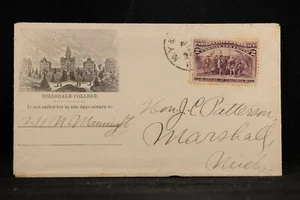 HILLSDALE COLLEGE
If not called for in ten days return to
211 N
Hon J. C. Patterson,
Marshall,
Mich.